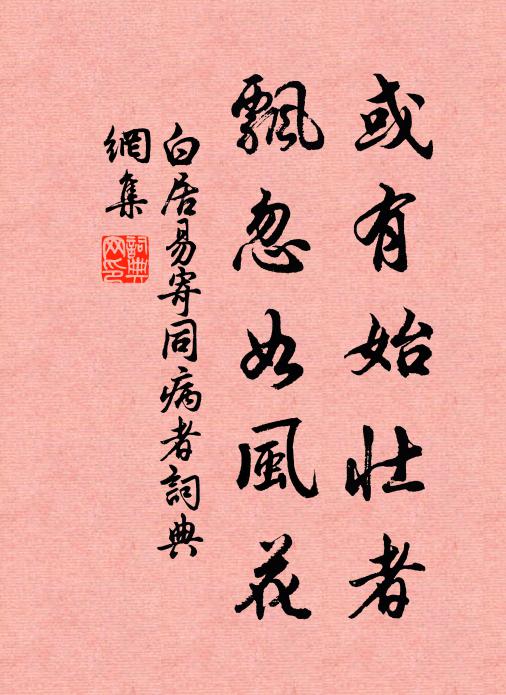 或有始壯者
飄忽如風花
白居易寄同病者詞典
網集
詞典
网印